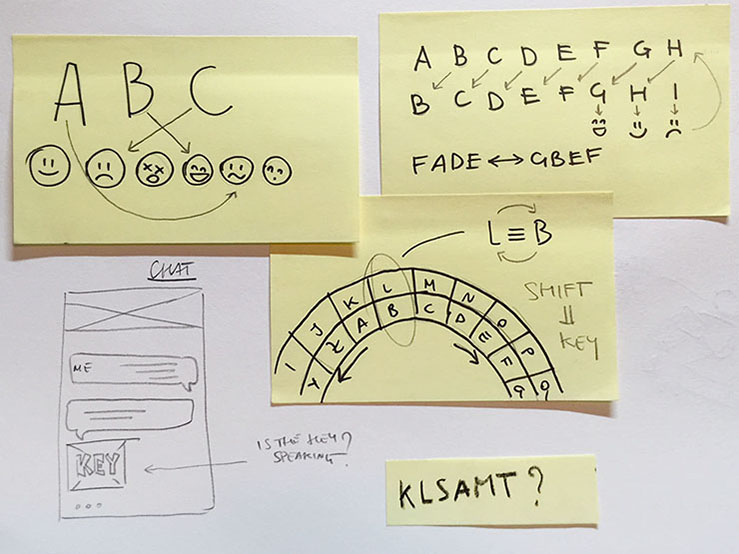 A B C
A B C D E F G H
B C D E F G H I
FADE ↔ GBEF
L ≡ B
SHIFT
⇓
KEY
I J K L M N O P Q
Y Z A B C D E F G
CHAT
ME
KEY
IS THE KEY
SPEAKING?
KLSAMT?